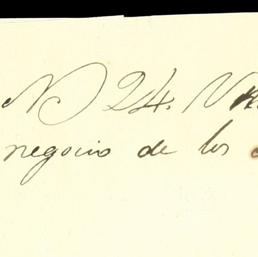 N 24.
negocio de los